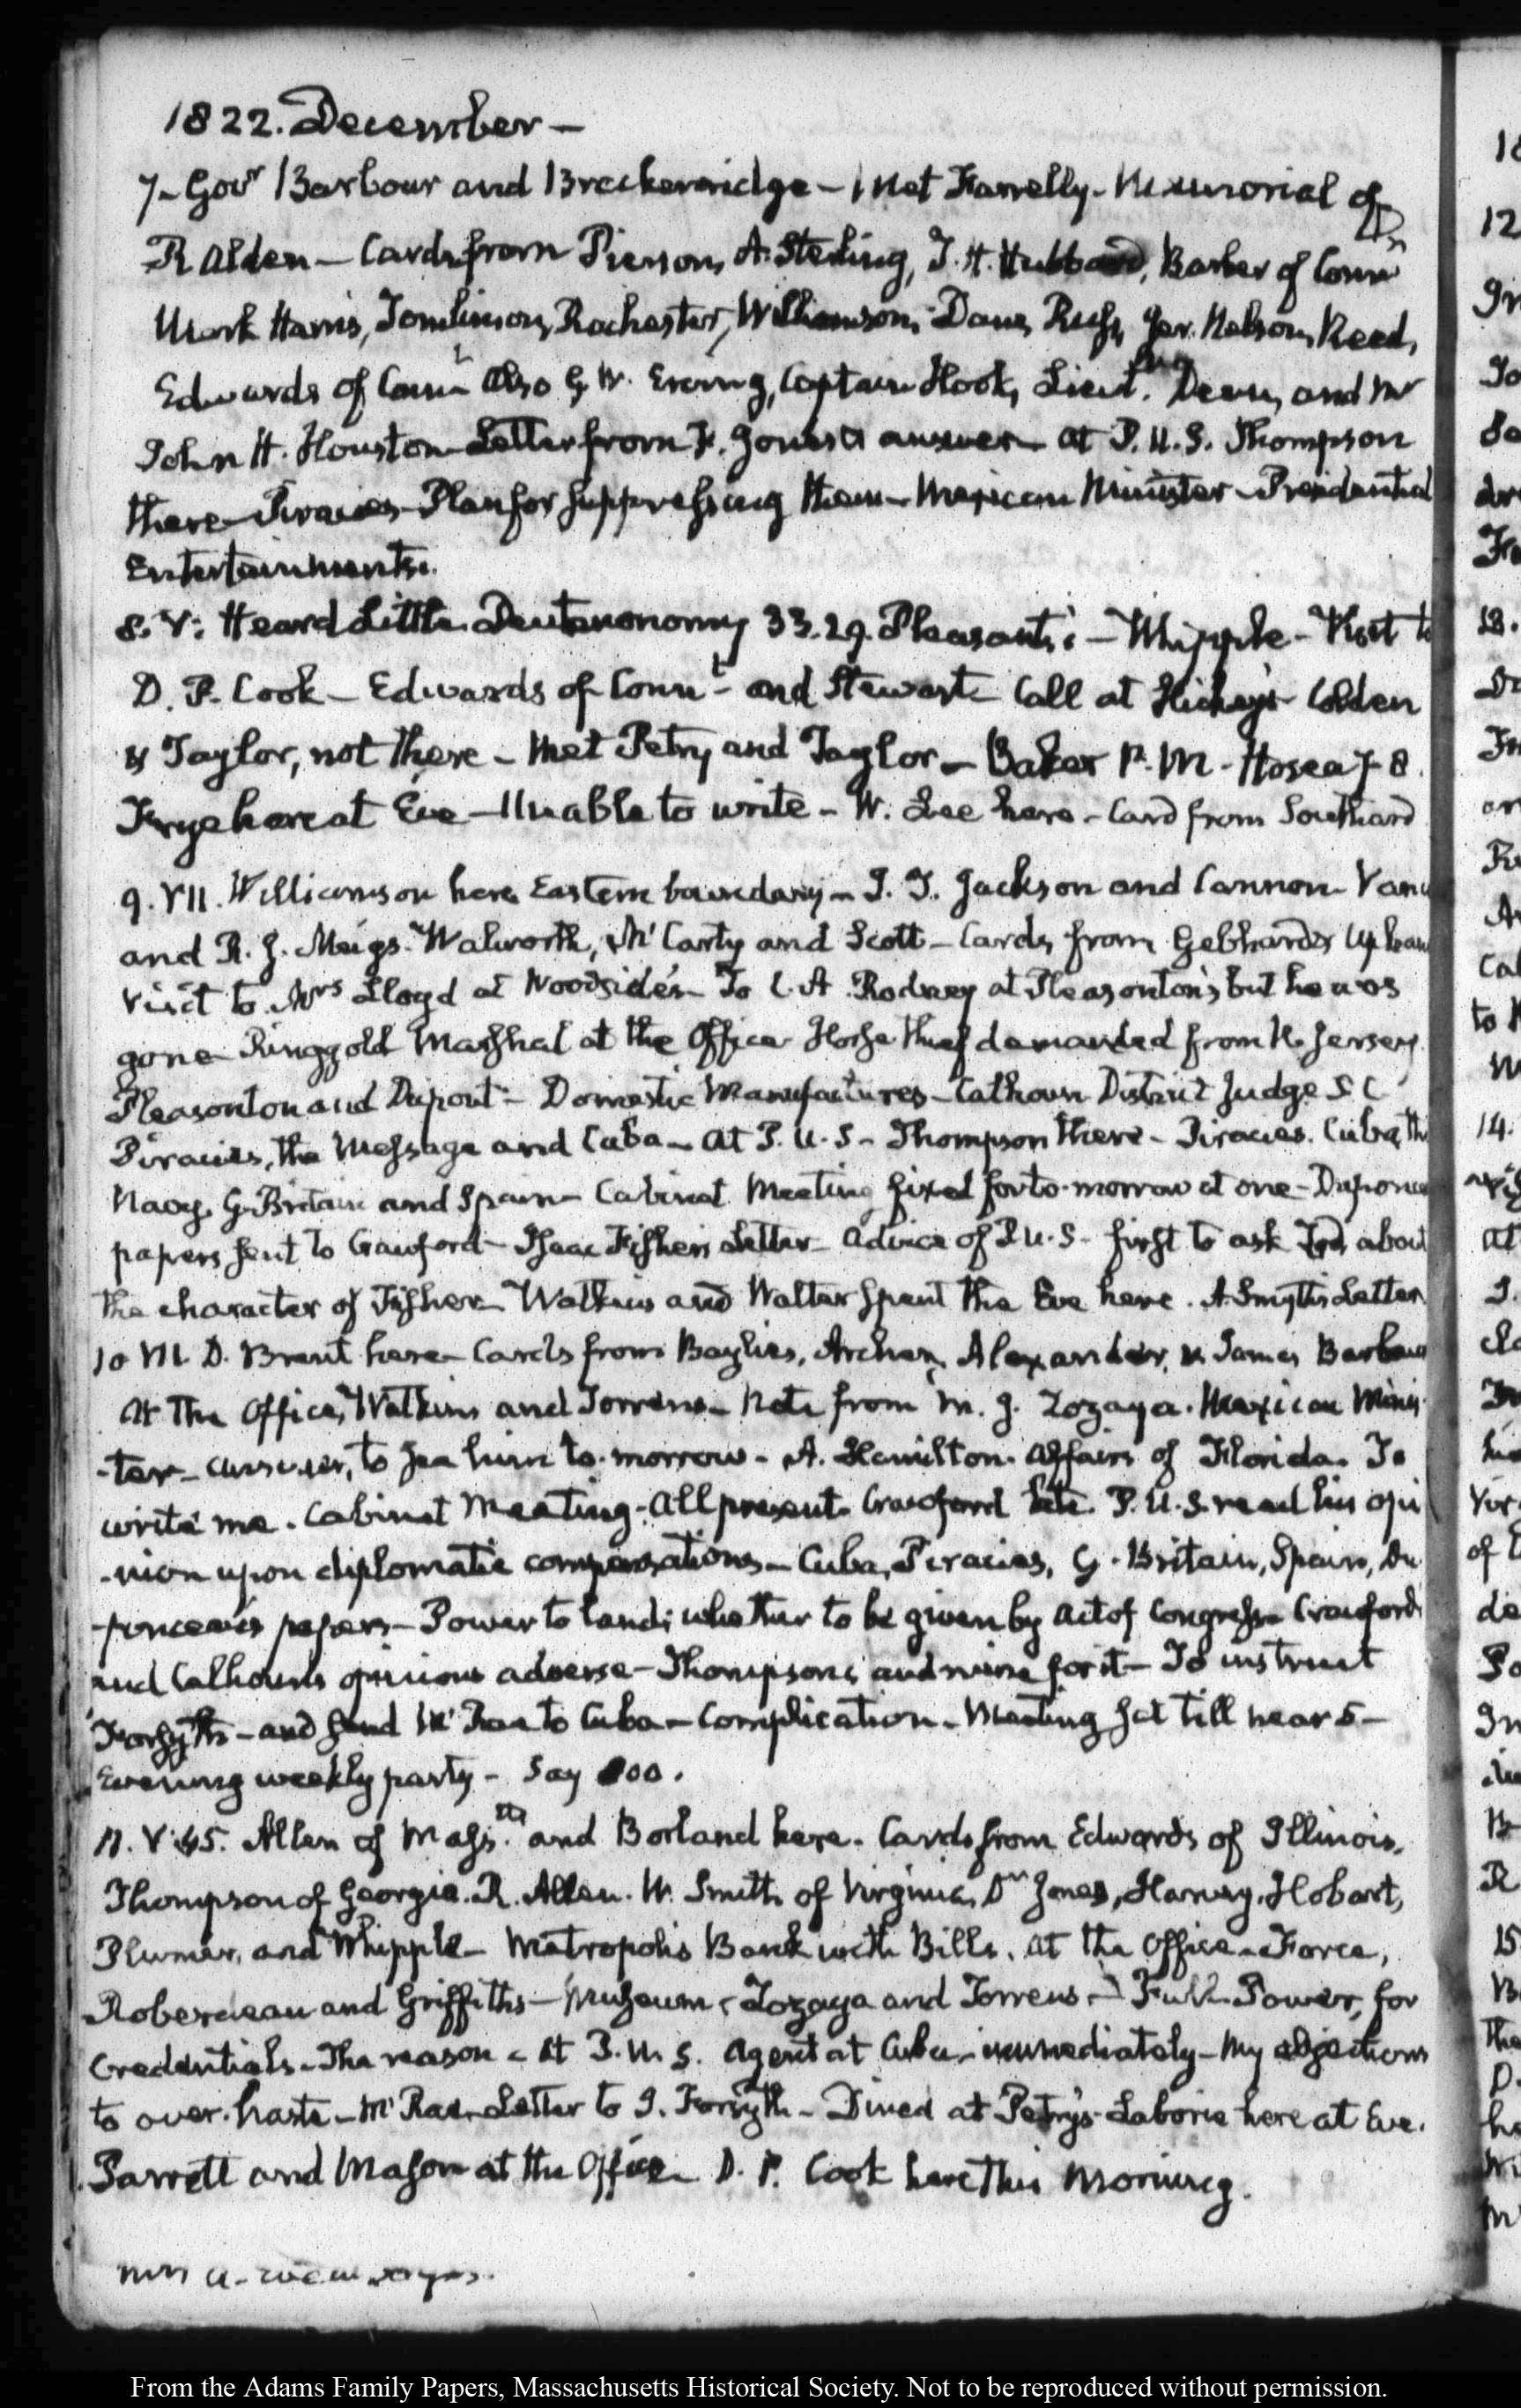 1822. December —
7 - Govr Barbour and Breckenridge — Met Farrelly - Memorial of
R Alden — Cards from Pierson, A. Sterling, T. H. Hubbard, Barber of Connt
Mark Harris, Tomlinson, Rochester, Williamson, Dane, Jer. Nelson, Reed,
Edwards of Connt Also G. W. Erving, Captain Hook, Lieut. and Mr
John H. Houston — Letter from answer — at P.U.S. Thompson
there — Piracies — Plan for suppressing them — Mexican Minister — Presidential
Entertainments.
8. V: Heard Little. Deuteronomy 33.29. Pleasants: — Whipple — Visit to
D. P. Cook — Edwards of Connt — and Stewart — Call at Hickey's — Colden
& Taylor, not there — Met Petry and Taylor — Baker P. M - Hosea 7 8.
Frye here at Eve — Unable to write — W. Lee here — Card from Southard
9. VII. Williamson here Eastern boundary — J. J. Jackson and Cannon
and R. J. Meigs. Walworth, McCarty and Scott — Cards from Gebhard, Upham
Visit to Mrs Lloyd at Woodside's — To C. A. Rodney at Pleasonton's but he was
gone — Ringgold Marshal at the Office Horse thief demanded from N. Jersey.
Pleasonton and Dupont — Domestic Manufactures — Calhoun District Judge S C
Piracies, the Message and Cuba — at P.U.S — Thompson there — Piracies. Cuba, the
Navy, G. Britain and Spain — Cabinet Meeting fixed for to-morrow at one — Duponceau
papers sent to Crawford — Isaac Fisher's Letter — Advice of P.U.S — first to ask about
the character of Fisher — Watkins and Walter spent the Eve here. A. Smyth's Letter
10 VI. D. Brent here — Cards from Baylies, Archer, Alexander, & James Barbour
At the Office, Watkins and Torrens — Note from M. J. Zozaya. Mexican Minis-
-ter — answer, to see him to-morrow — A. Hamilton. Affairs of Florida. To
write me. Cabinet Meeting. All present. Crawford late. P.U.S. read his opi
-nion upon diplomatic compensations — Cuba, Piracies, G. Britain, Spain, Du
-ponceau's papers — Power to land; whether to be given by act of Congress — Crawford's
and Calhoun's opinions adverse — Thompson's and mine for it — To instruct
Forsyth — and send McRae to Cuba — Complication — Meeting sat till near 5 —
Evening weekly party — Say 100.
11. V.45. Allen of Masstts and Borland here. Cards from Edwards of Illinois,
Thompson of Georgia. R. Allen. W. Smith of Virginia, Dr Jones, Harvey, Hobart,
Plumer, and Whipple — Metropolis Bank with Bills. At the Office — Force,
Roberdeau and Griffiths — Museum — Zozaya and Torrens — Full Power, for
Credentials — The reason — At P.U.S. Agent at Cuba — immediately — My objections
to over-haste — McRae — Letter to J. Forsyth — Dined at Petry's — Laborie here at Eve.
Parrott and Mason at the Office — D. P. Cook here this Morning.
From the Adams Family Papers, Massachusetts Historical Society. Not to be reproduced without permission.